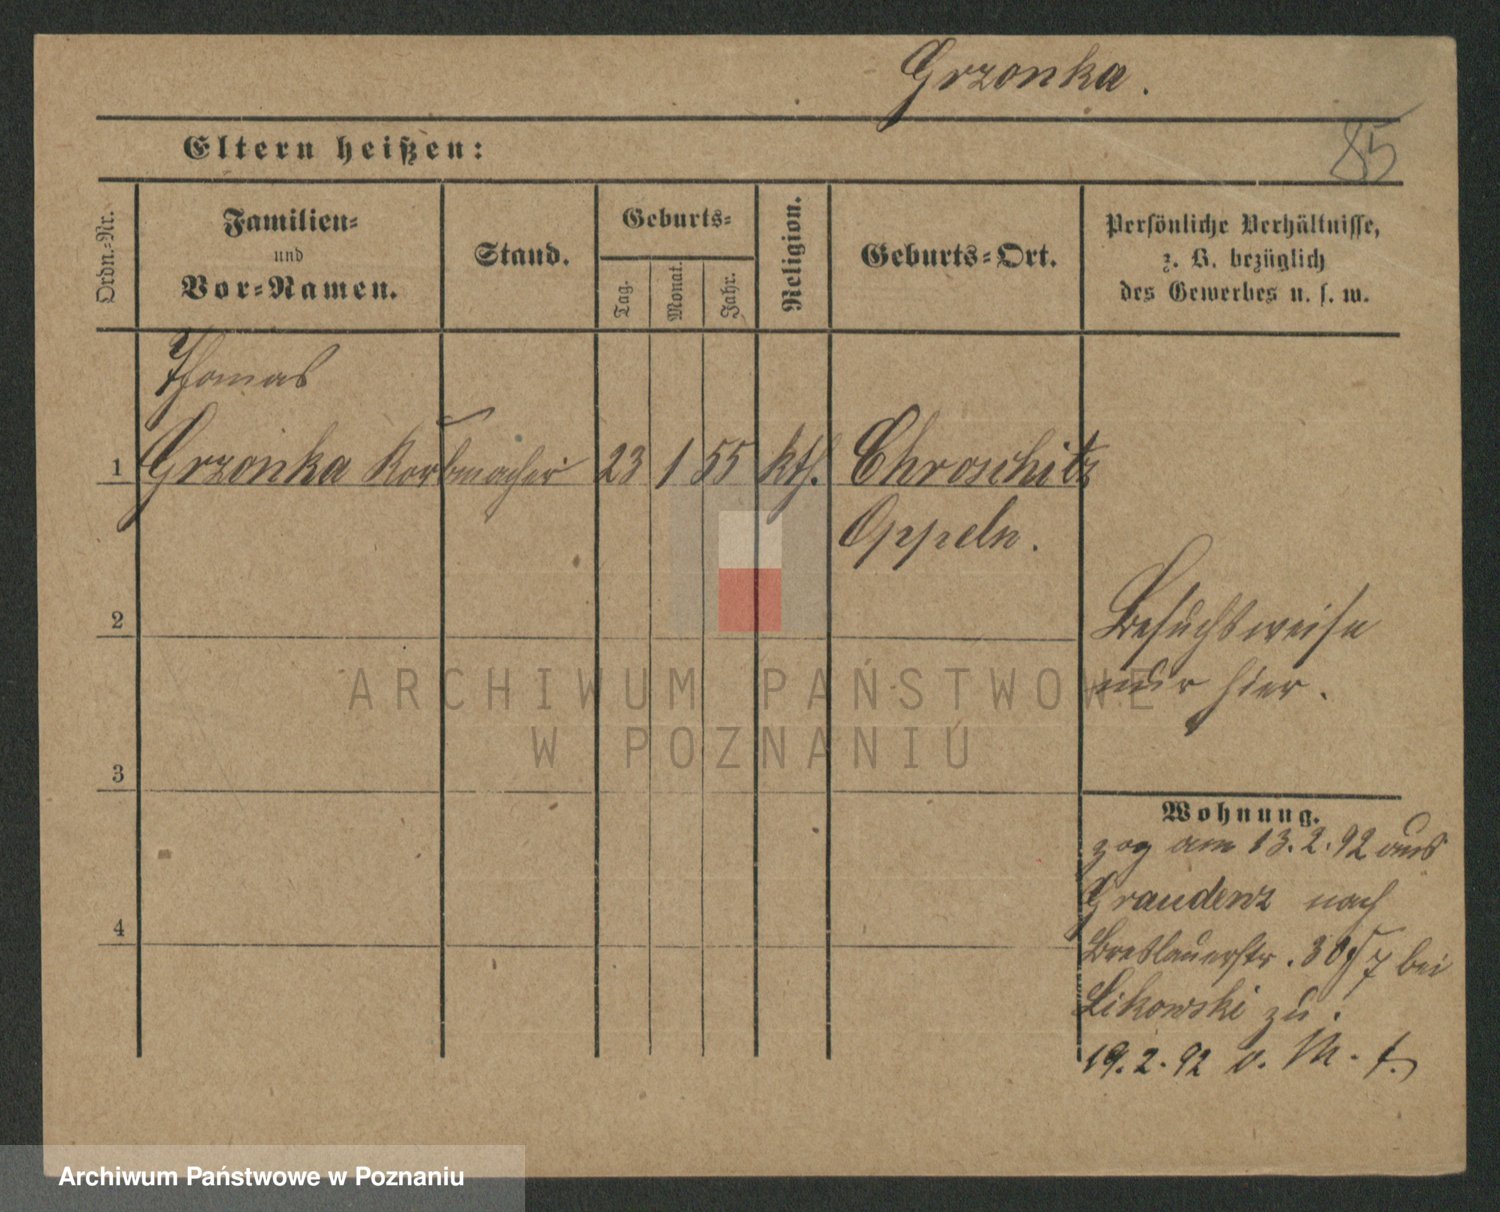 Grzonka.
85
Eltern heißen:
Ordn.-Nr.
Familien-
und
Vor-Namen.
Stand.
Geburts-
Tag.
Monat.
Jahr.
Religion.
Geburts-Ort.
Persönliche Verhältnisse,
z. B. bezüglich
des Gewerbes u. s. w.
Thomas
1 Grzonka Korbmacher 23 1 55 kth. Chroschitz
Oppeln.
2
Besuchsweise
nur hier.
ARCHIWUM PAŃSTWOWE
W POZNANIU
3
Wohnung.
zog am 13.2.92 aus
Graudenz nach
4
Breslauerstr. 30/7 bei
Likowski zu.
19.2.92 v. M.
Archiwum Państwowe w Poznaniu